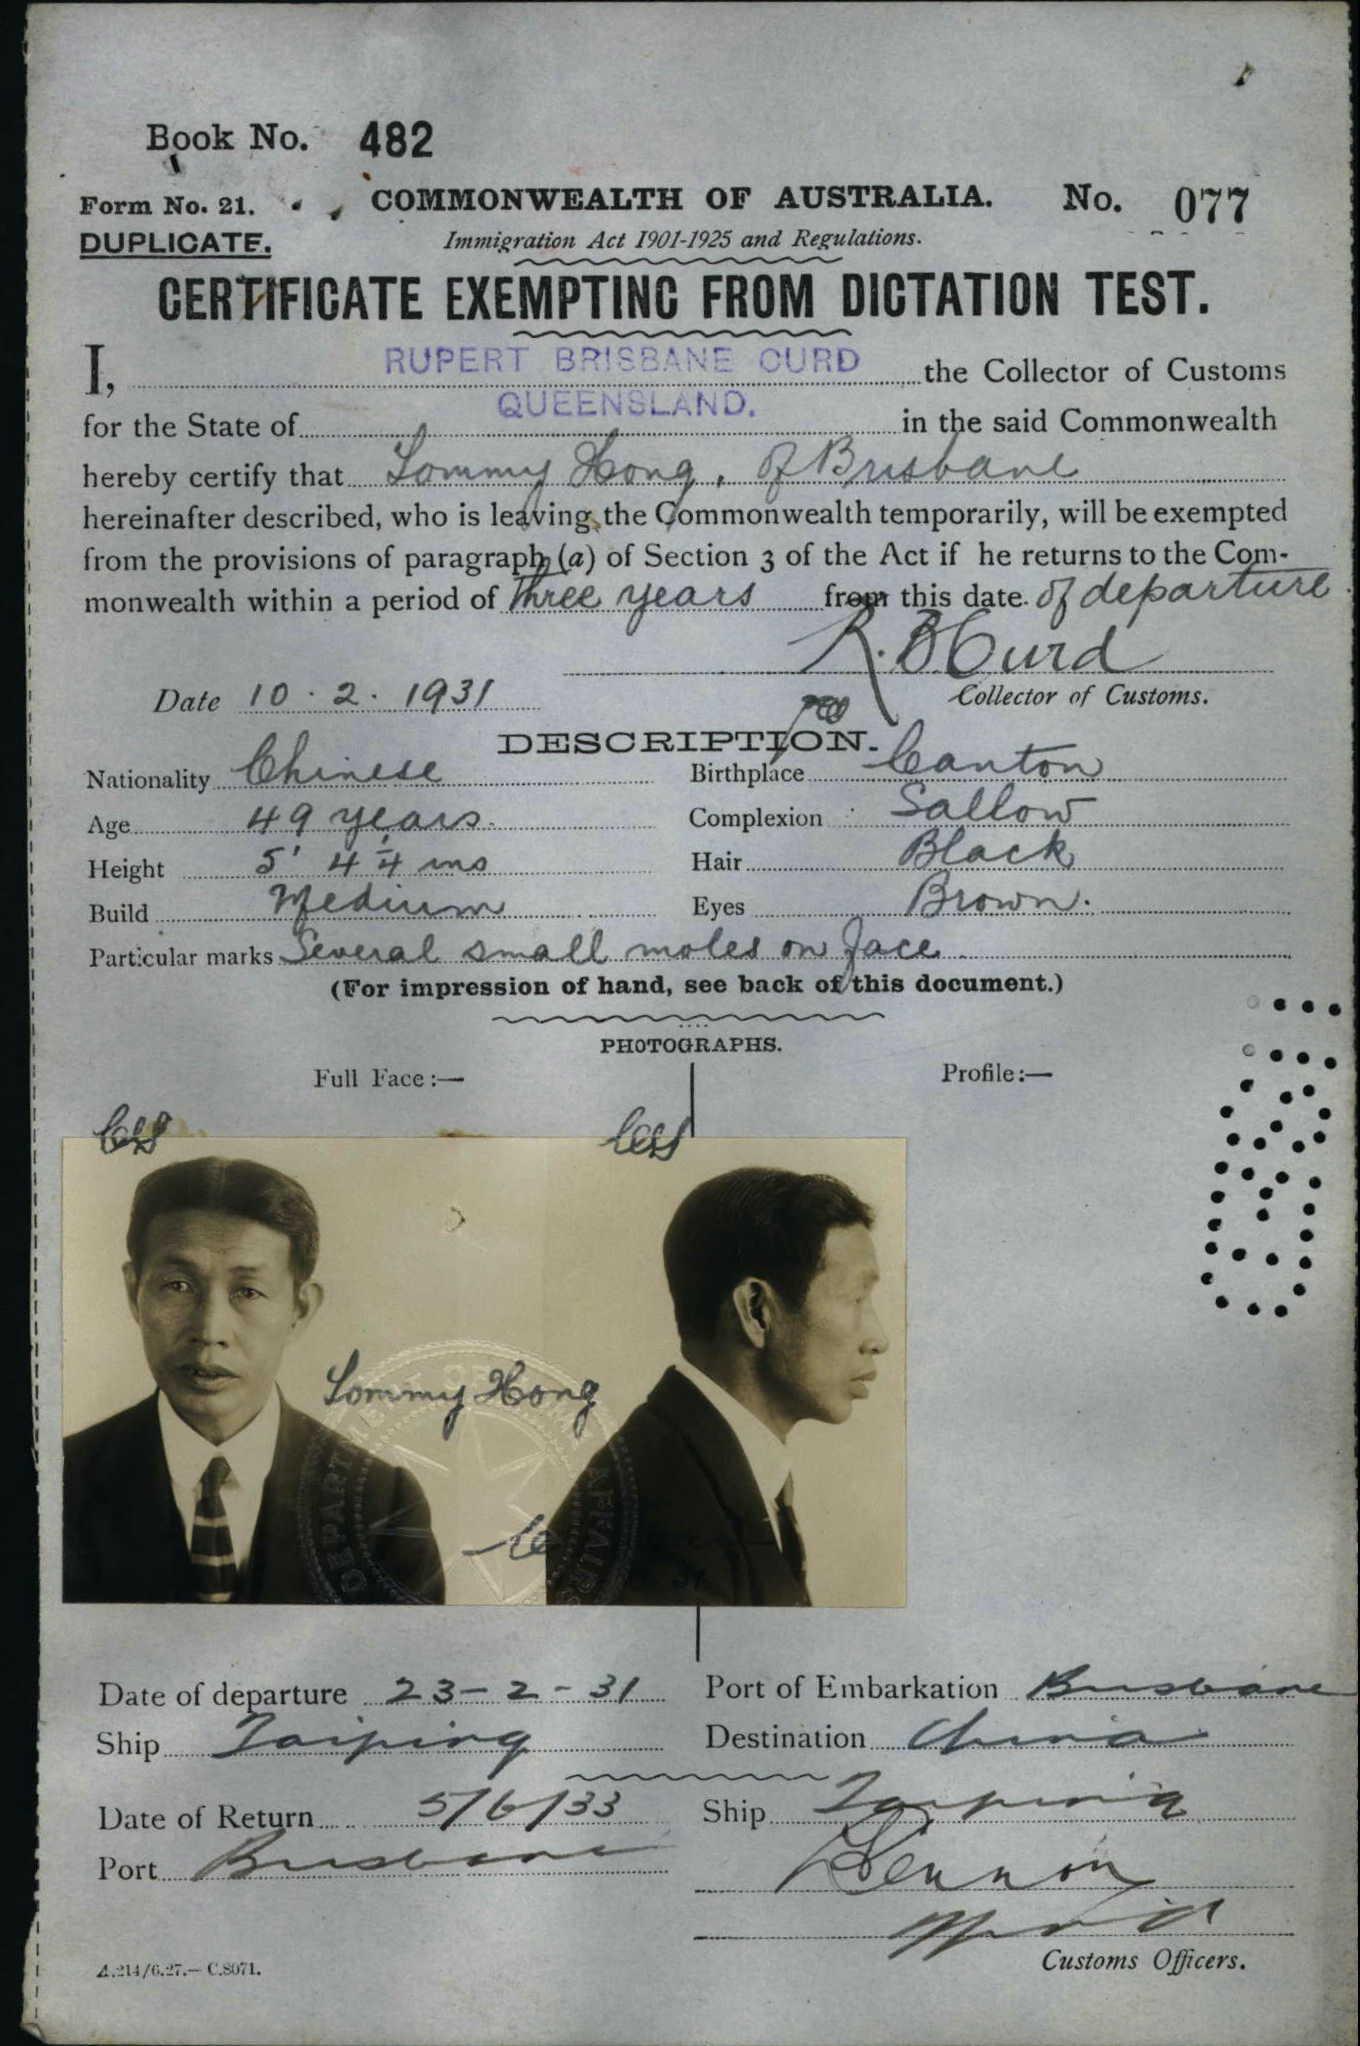 Book No. 482
Form No. 21. COMMONWEALTH OF AUSTRALIA. No. 077
DUPLICATE. Immigration Act 1901-1925 and Regulations.
CERTIFICATE EXEMPTING FROM DICTATION TEST.
I, RUPERT BRISBANE CURD the Collector of Customs
for the State of QUEENSLAND. in the said Commonwealth
hereby certify that Tommy Hong, of Brisbane
hereinafter described, who is leaving the Commonwealth temporarily, will be exempted
from the provisions of paragraph (a) of Section 3 of the Act if he returns to the Com-
monwealth within a period of Three years from this date of departure
R. B Curd
Date 10.2.1931 Collector of Customs.
DESCRIPTION.
Nationality Chinese Birthplace Canton
Age 49 years. Complexion Sallow
Height 5' 4 1/4 ins Hair Black
Build Medium Eyes Brown.
Particular marks Several small moles on face
(For impression of hand, see back of this document.)
PHOTOGRAPHS.
Full Face:— Profile:—
Tommy Hong
DEPARTMENT OF AFFAIRS
Date of departure 23-2-31 Port of Embarkation Brisbane
Ship Taiping Destination China
Date of Return 5/6/33 Ship Taiping
Port Brisbane Lennon
Customs Officers.
A.214/6.27.—C.8071.